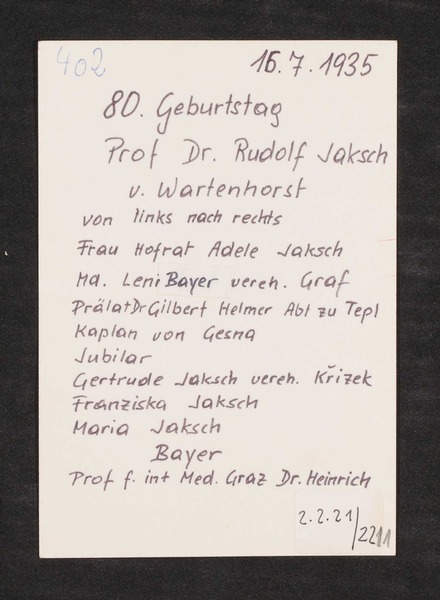 402
16.7.1935
80. Geburtstag
Prof Dr. Rudolf Jaksch
v. Wartenhorst
von links nach rechts
Frau Hofrat Adele Jaksch
Md. Leni Bayer vereh. Graf
Prälat Dr Gilbert Helmer Abt zu Tepl
Kaplan von Gesna
Jubilar
Gertrude Jaksch vereh. Křizek
Franziska Jaksch
Maria Jaksch
Bayer
Prof f. int Med. Graz Dr. Heinrich
2.2.21/2211